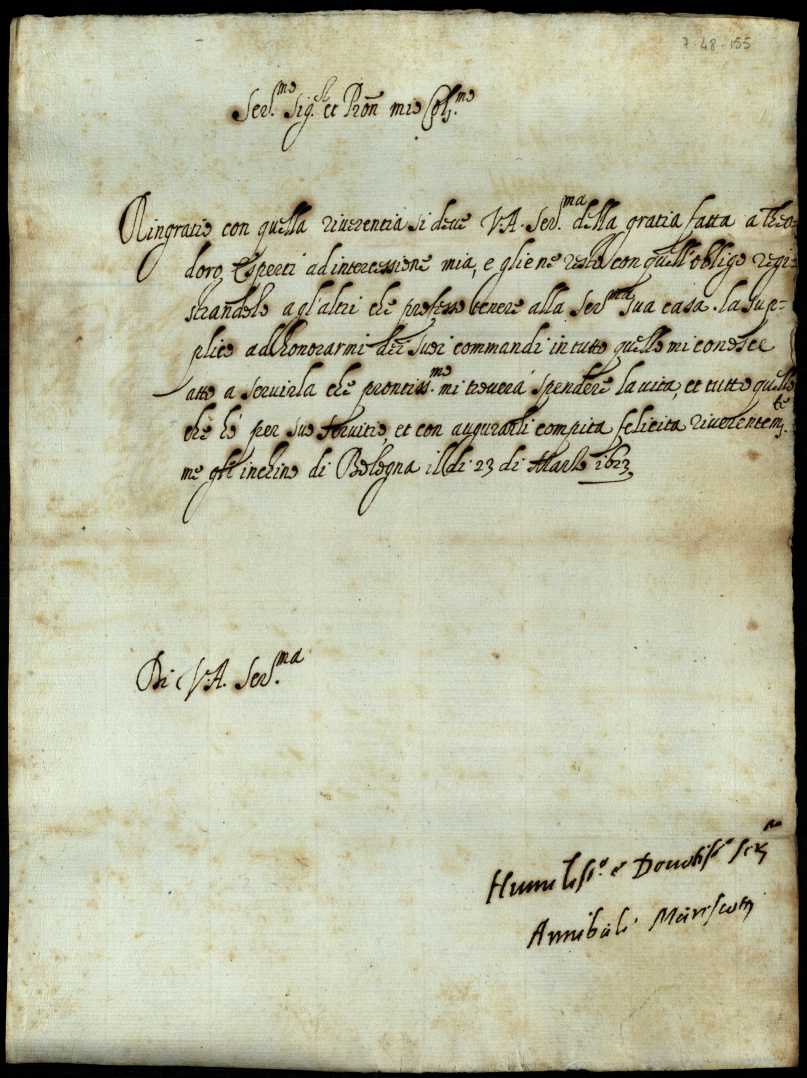 7-48-155
Ser.mo Sig.r et Pron mio Col.mo
Ringratio con quella riverentia si deve V.A. Ser.ma della gratia fatta a Theo-
doro Esperti ad intercessione mia, e gliene resto con quell'obligo regi-
strandolo a gl'altri che professo tenere alla Ser.ma sua casa. la sup-
plico ad honorarmi dei suoi commandi in tutto quello mi conosce
atto a servirla che prontiss.mo mi troverà spendere la vita, et tutto quello
che hò per suo servitio, et con augurarli compita felicita riverentem.te
me gli inchino di Bologna il dì 23 di Marzo 1623
Di V.A. Ser.ma
Humilissi.o e Devotiss.o Ser.re
Annibali Marescotti